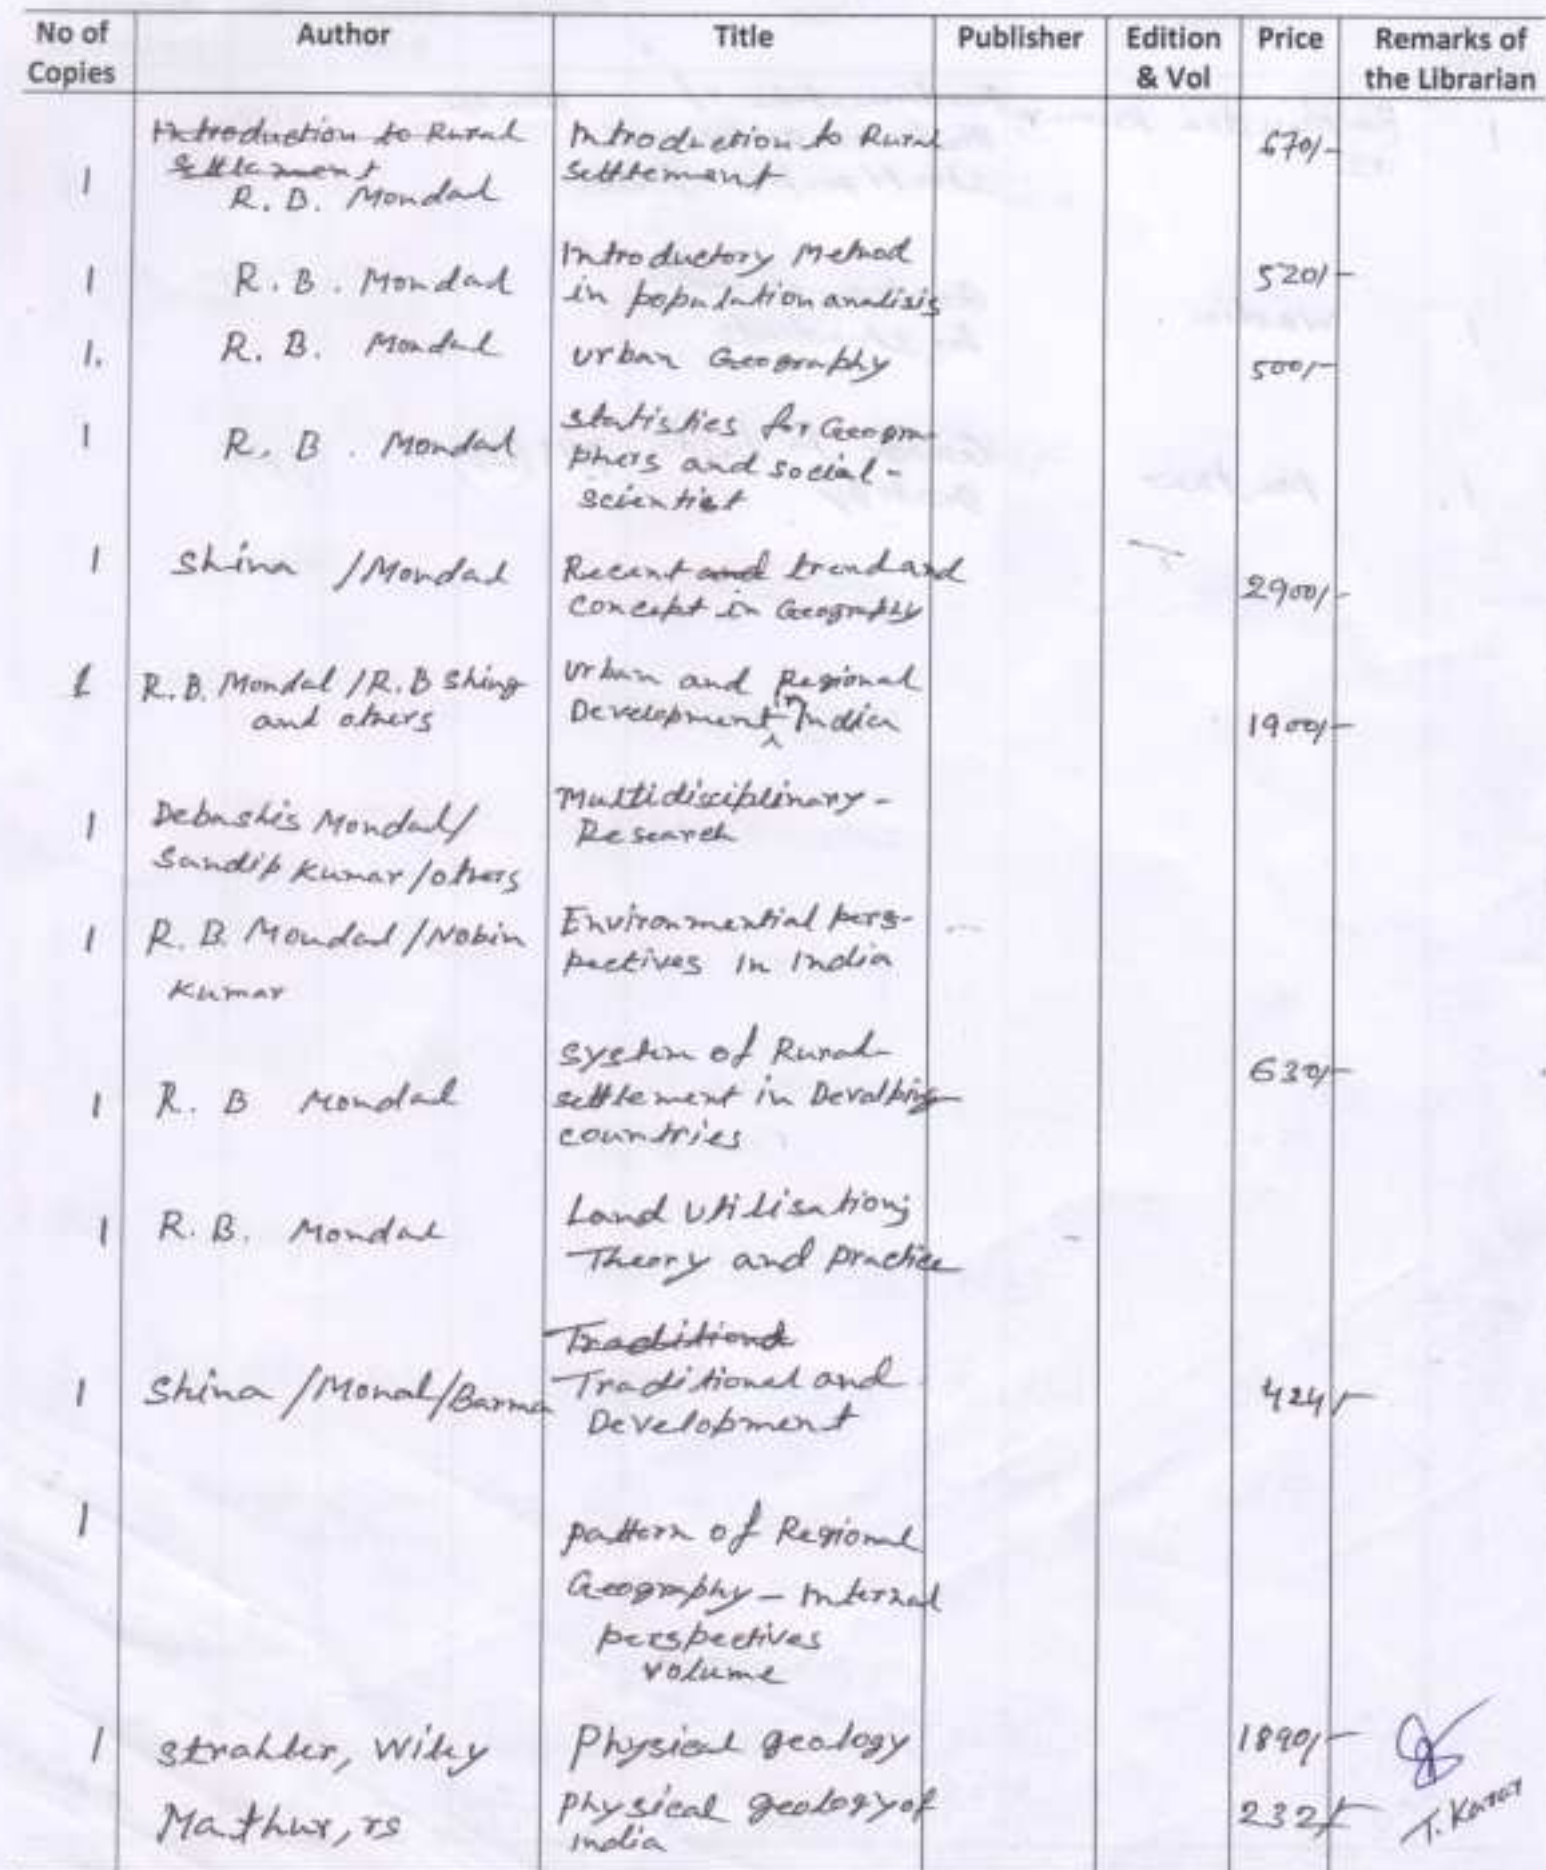 No of Copies | Author | Title | Publisher | Edition & Vol | Price | Remarks of the Librarian
Introduction to Rural
Settlement
1 R. B. Mondal
Introduction to Rural
Settlement
670/-
1 R. B. Mondal
Introductory Method
in population analisis
520/-
1. R. B. Mondal
Urban Geography
500/-
1 R. B. Mondal
Statisties for Geogra
phers and social-
scientist
1 Shina /Mondal
Recent and trend and
concept in Geography
2900/-
1 R. B. Mondal /R.B Shing
and others
Urban and Regional
Development in India
1900/-
1 Debashis Mondal/
Sandip Kumar/others
Multidisciplinary-
Research
1 R. B. Mondal /Nobin
Kumar
Environmential pers-
pectives in India
1 R. B Mondal
System of Rural-
settlement in Devalping
countries
630/-
1 R. B. Mondal
Land Utilisation;
Theory and practice
1 Shina /Monal/Barma
Traditional
Traditional and
Development
424/-
1
pattern of Regional
Geography - internal
perspectives
volume
1 Strahler, Wiley
Physical geology
1890/-
Mathur, rs
Physical geology of
India
232/-
T. Karar